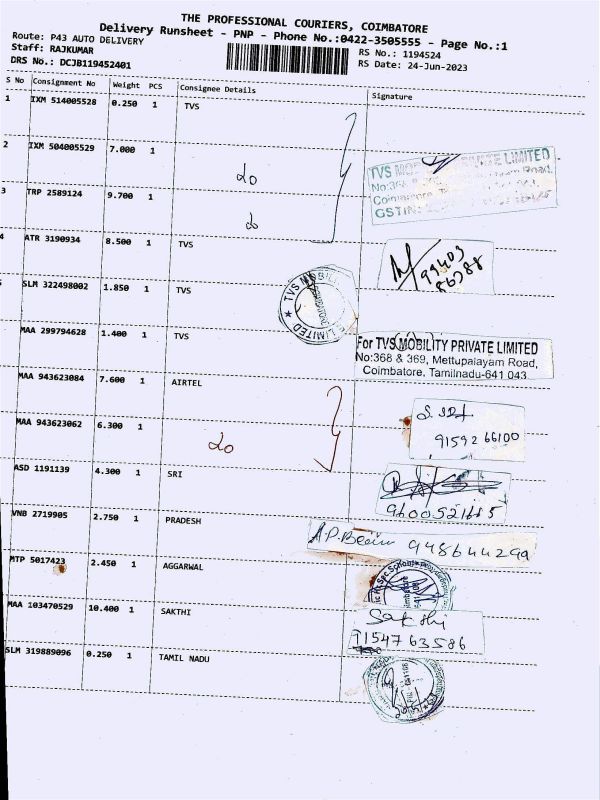 THE PROFESSIONAL COURIERS, COIMBATORE
Delivery Runsheet - PNP - Phone No.:0422-3505555 - Page No.:1
Route: P43 AUTO DELIVERY
Staff: RAJKUMAR
DRS No.: DCJB119452401
RS No.: 1194524
RS Date: 24-Jun-2023
S No Consignment No Weight PCS Consignee Details Signature
1 IXM 514005528 0.250 1 TVS
2 IXM 504005529 7.000 1 do
TVS MOBILITY PRIVATE LIMITED
No:368 Road,
Coimbatore,
GSTIN:
3 TRP 2589124 9.700 1 do
4 ATR 3190934 8.500 1 TVS
99403
86388
SLM 322498002 1.850 1 TVS
TVS MOBILITY LIMITED
MAA 299794628 1.400 1 TVS
For TVS MOBILITY PRIVATE LIMITED
No:368 & 369, Mettupalayam Road,
Coimbatore, Tamilnadu-641 043
MAA 943623084 7.600 1 AIRTEL
9159266100
MAA 943623062 6.300 1 do
ASD 1191139 4.300 1 SRI
9600521685
VNB 2719905 2.750 1 PRADESH
A.P.Beem 9486444299
MTP 5017423 2.450 1 AGGARWAL
MAA 103470529 10.400 1 SAKTHI
Sakthi
9154763586
SLM 319889096 0.250 1 TAMIL NADU